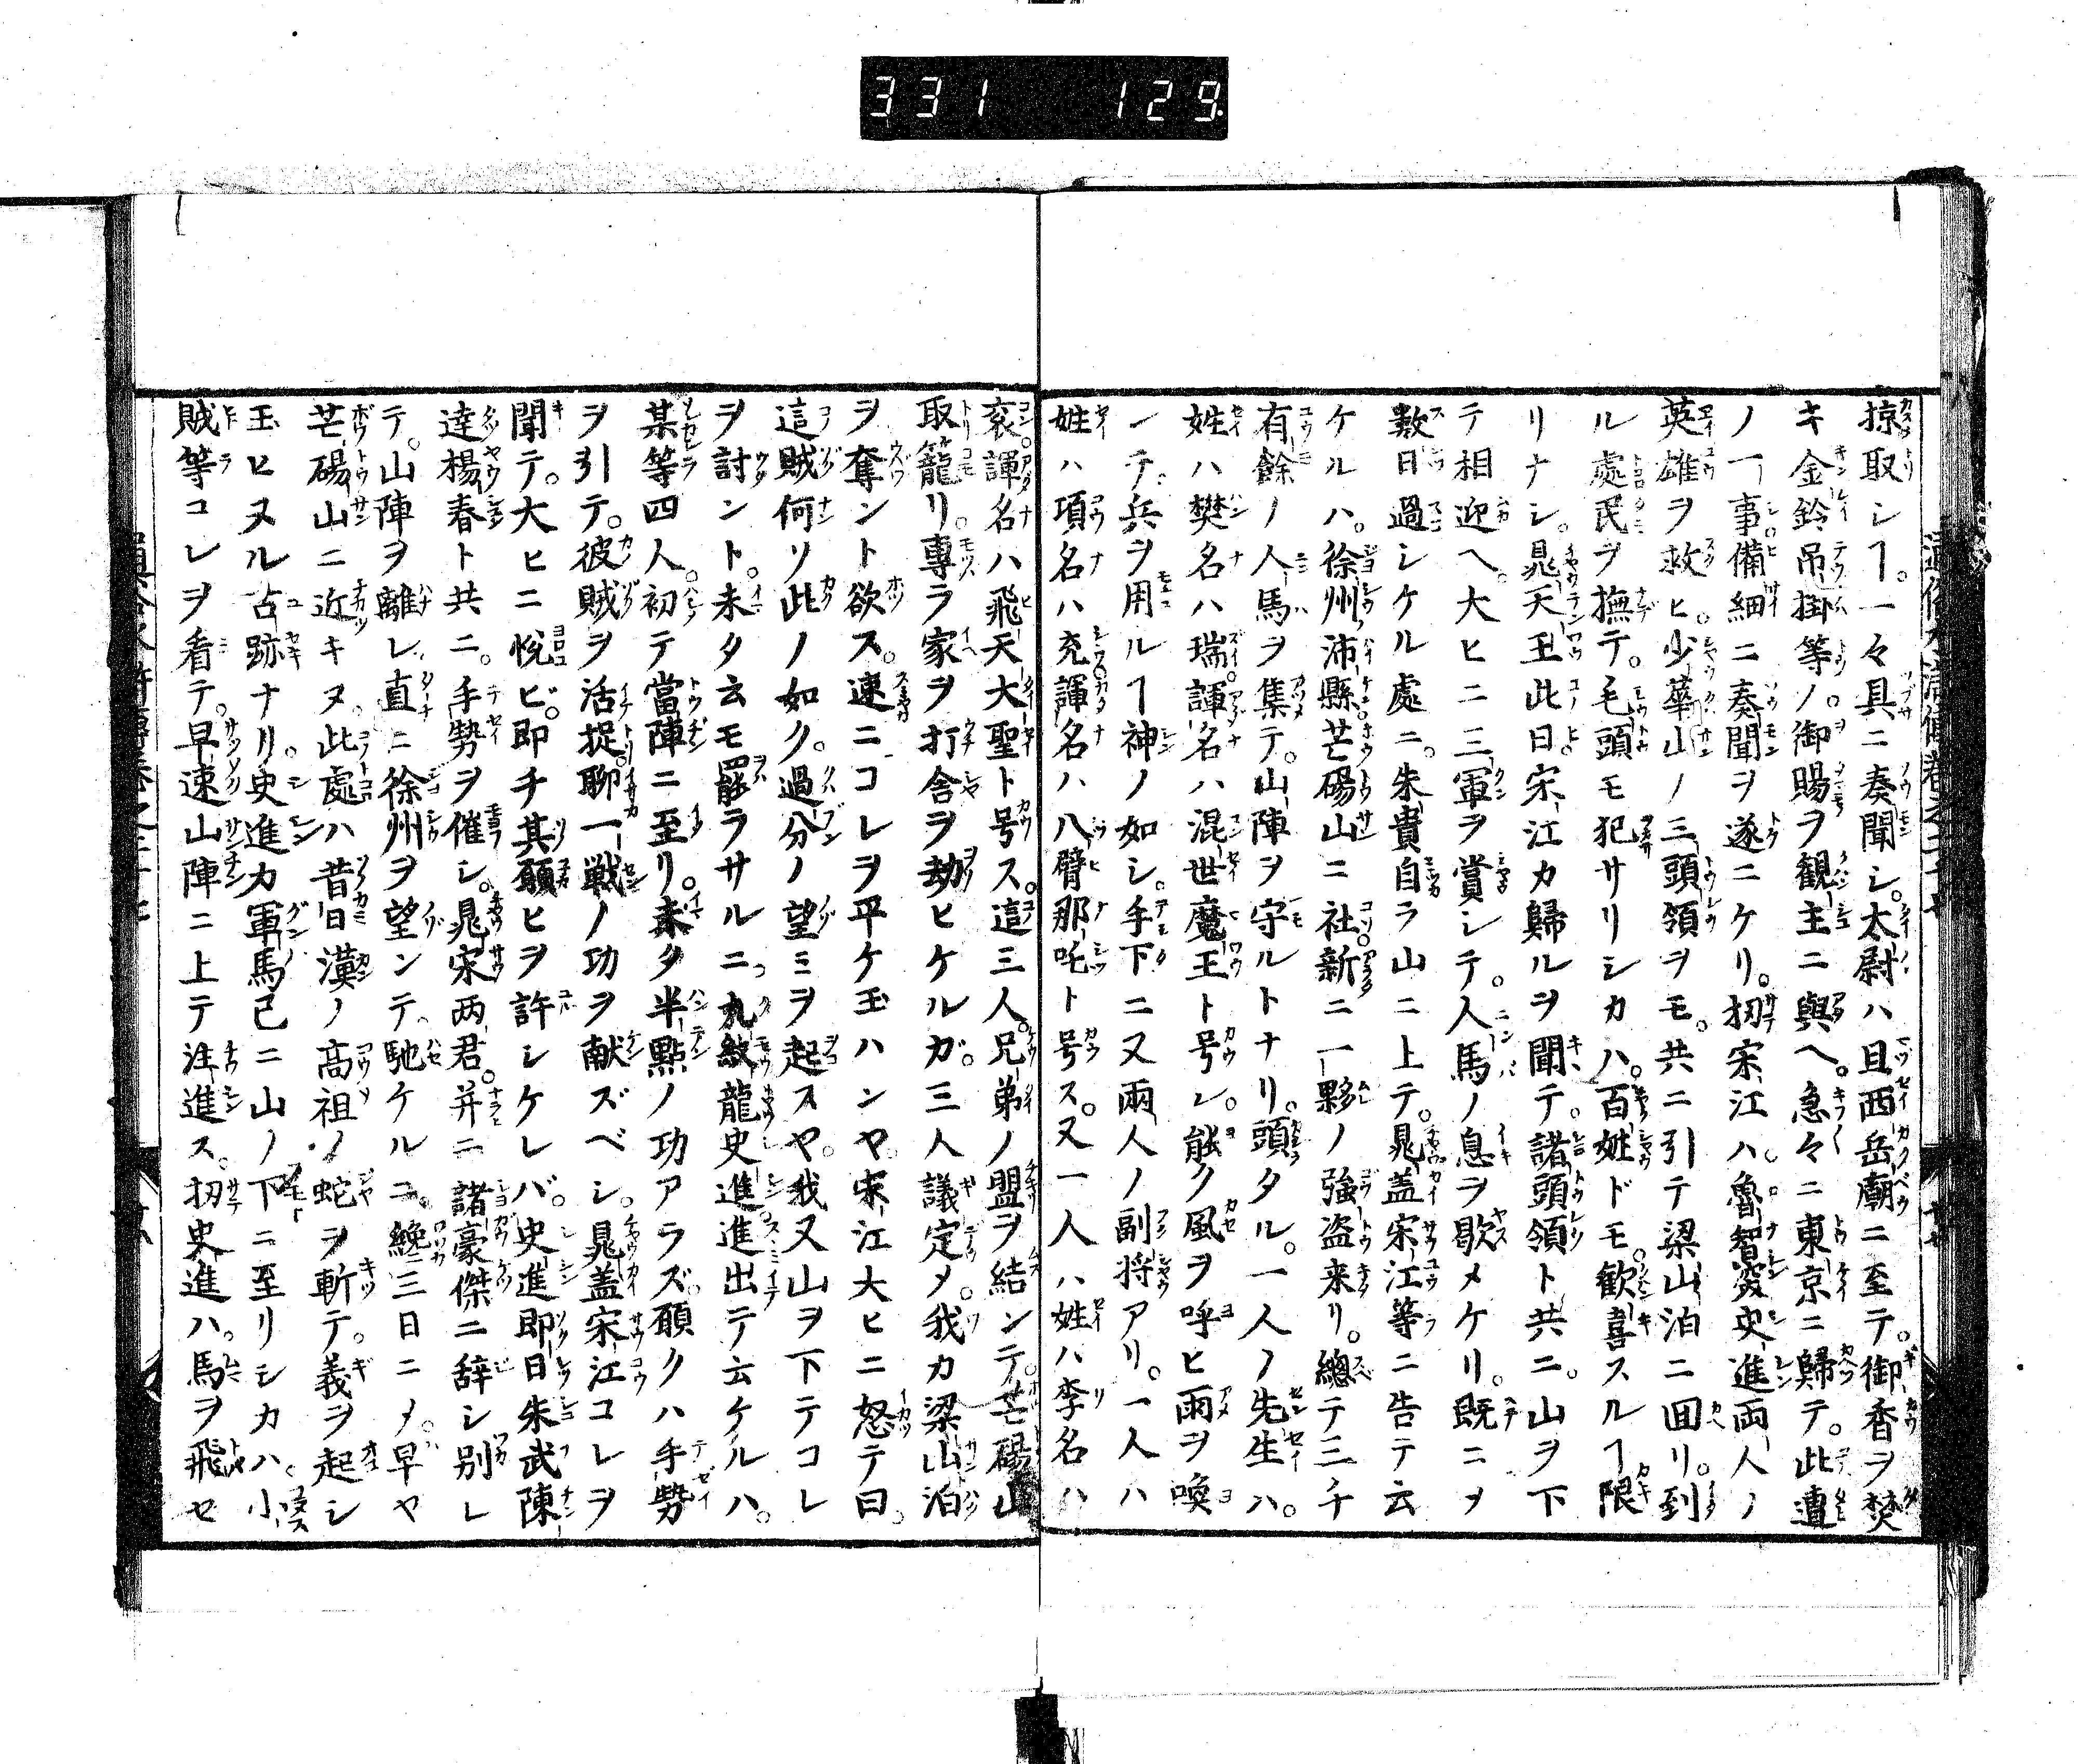 331 129
掠取シヿ。一々具ニ奏聞シ。太尉ハ且西岳廟ニ至テ。御香ヲ焚
キ金鈴吊掛等ノ。御賜ヲ観主ニ與ヘ。急々ニ東京ニ歸テ。此遭
ノ一事備細ニ奏聞ヲ遂ニケリ。扨宋江ハ魯智深史進両人ノ
英雄ヲ救ヒ。少華山ノ三頭領ヲモ。共ニ引テ梁山泊ニ囬リ。到
ル處民ヲ撫テ。毛頭モ犯サリシカハ。百姓ドモ歓喜スルヿ限
リナシ。晁天王此日。宋江カ歸ルヲ聞テ。諸頭領ト共ニ。山ヲ下
テ相迎ヘ。大ヒニ三軍ヲ賞シテ。人馬ノ息ヲ歇メケリ。既ニメ
数日過シケル處ニ。朱貴自ラ山ニ上テ。晁盖宋江等ニ告テ云
ケルハ。徐州沛縣芒碭山ニ社。新ニ一夥ノ強盗来リ。總テ三千
有餘ノ人馬ヲ集テ。山陣ヲ守ルトナリ。頭タル。一人ノ先生ハ。
姓ハ樊名ハ瑞諢名ハ混世魔王ト号シ。能ク風ヲ呼ヒ雨ヲ喚
ンテ。兵ヲ用ルヿ神ノ如シ。手下ニ又兩人ノ副将アリ。一人ハ
姓ハ項名ハ充諢名ハ八臂那吒ト号ス。又一人ハ姓ハ李名ハ
袞諢名ハ飛天大聖ト号ス。這三人。兄弟ノ盟ヲ結ンテ。芒碭山
取籠リ。專ラ家ヲ打舎ヲ劫ヒケルガ。三人議定メ。我カ梁山泊
ヲ奪ント欲ス。速ニコレヲ平ケ玉ハンヤ。宋江大ヒニ怒テ曰。
這賊何ソ此ノ如ク。過分ノ望ミヲ起スヤ。我又山ヲ下テコレ
ヲ討ント。未タ云モ罷ラサルニ。九紋龍史進進出テ云ケルハ。
某等四人。初テ當陣ニ至リ。未タ半點ノ功アラズ。願クハ手勢
ヲ引テ。彼賊ヲ活捉聊一戦ノ功ヲ献ズベシ。晁盖宋江コレヲ
聞テ。大ヒニ悅ビ。即チ其願ヒヲ許シケレバ。史進即日朱武陳
達楊春ト共ニ。手勢ヲ催シ。晁宋両君。并ニ諸豪傑ニ辞シ別レ
テ。山陣ヲ離レ直ニ徐州ヲ望ンテ。馳ケルニ。纔三日ニメ。早ヤ
芒碭山ニ近キヌ。此處ハ昔日漢ノ高祖ノ蛇ヲ斬テ。義ヲ起シ
玉ヒヌル古跡ナリ。史進カ軍馬已ニ山ノ下ニ至リシカハ。小
賊等コレヲ看テ。早速山陣ニ上テ注進ス。扨史進ハ。馬ヲ飛セ